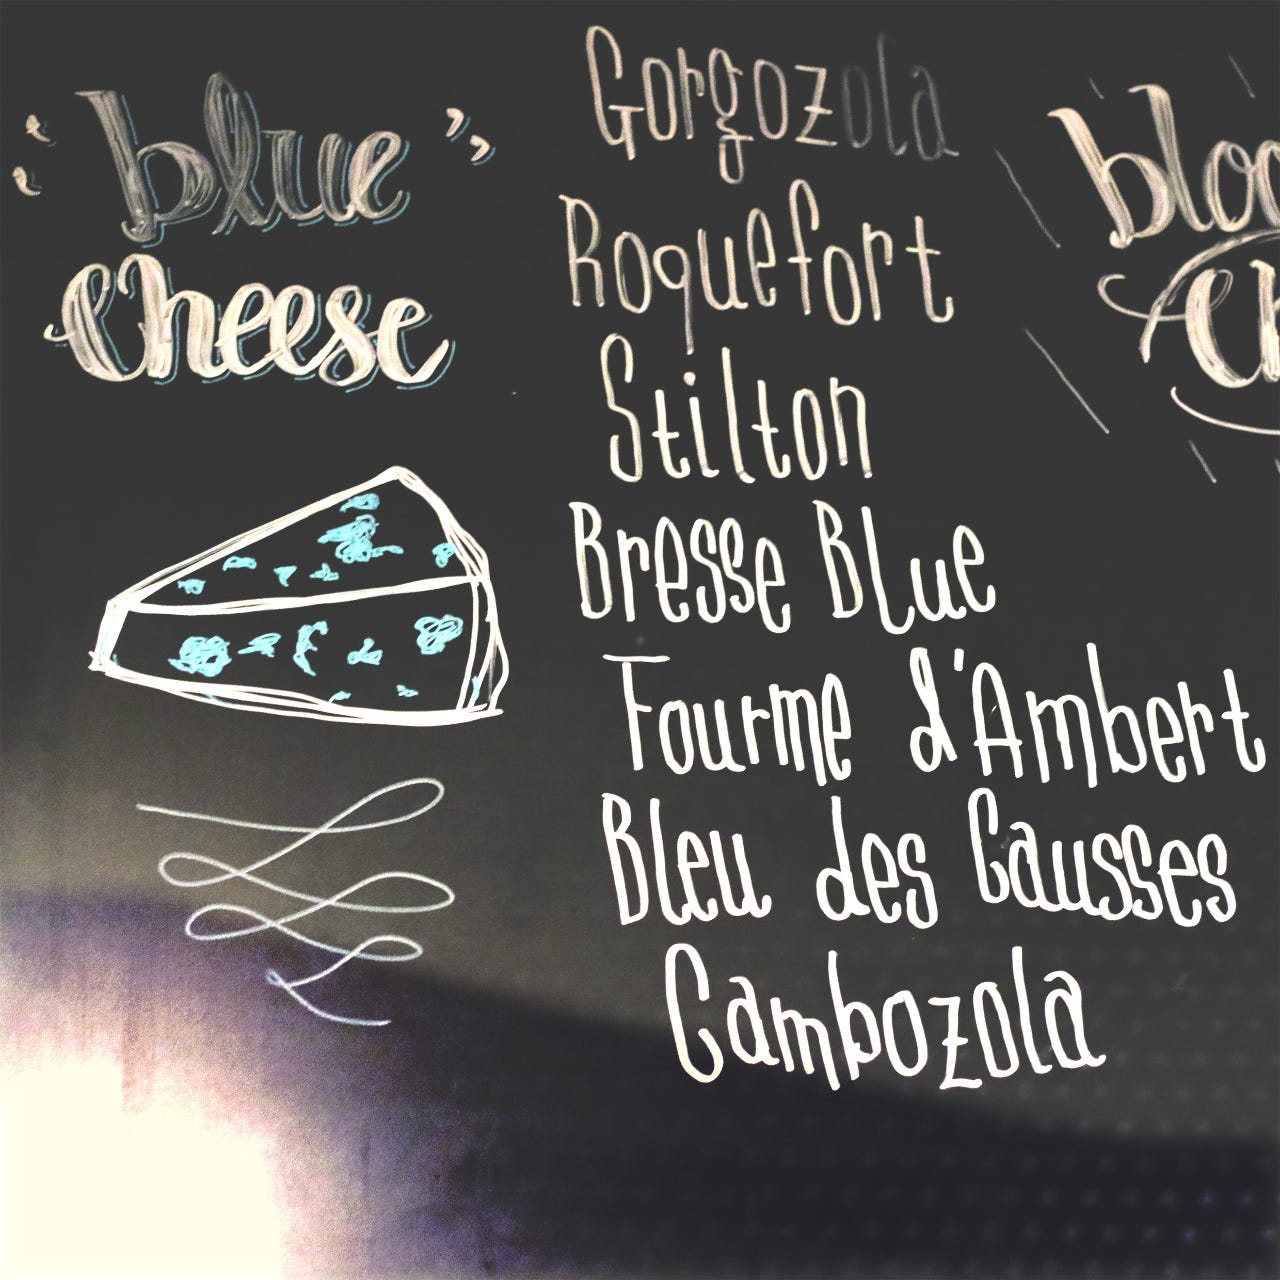 blue
Cheese
Gorgozola
Roquefort
Stilton
Bresse Blue
Fourme d'Ambert
Bleu des Causses
Cambozola